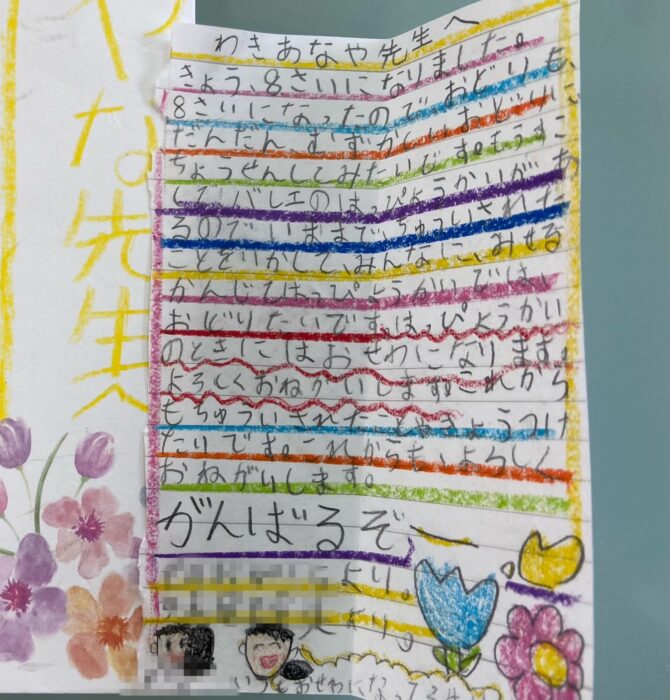 な先生へ
わきあなや先生へ
きょう、8さいになりました。
8さいになったので、おどりも、
だんだん、むずかしいおどりに
ちょうせんしてみたいです。もうすこ
しでバレエのはっぴょうかいがあ
るので、いままで、ちゅういされた
ことをいかして、みんなに、みせる
かんじではっぴょうかいでは、
おどりたいです。はっぴょうかい
のときにはおせわになります。
よろしくおねがいします。これから
もちゅういされたことやきょうつけ
たりです。これからも、よろしく
おねがいします。
がんばるぞー
より。
より。
いつもおせわになってま